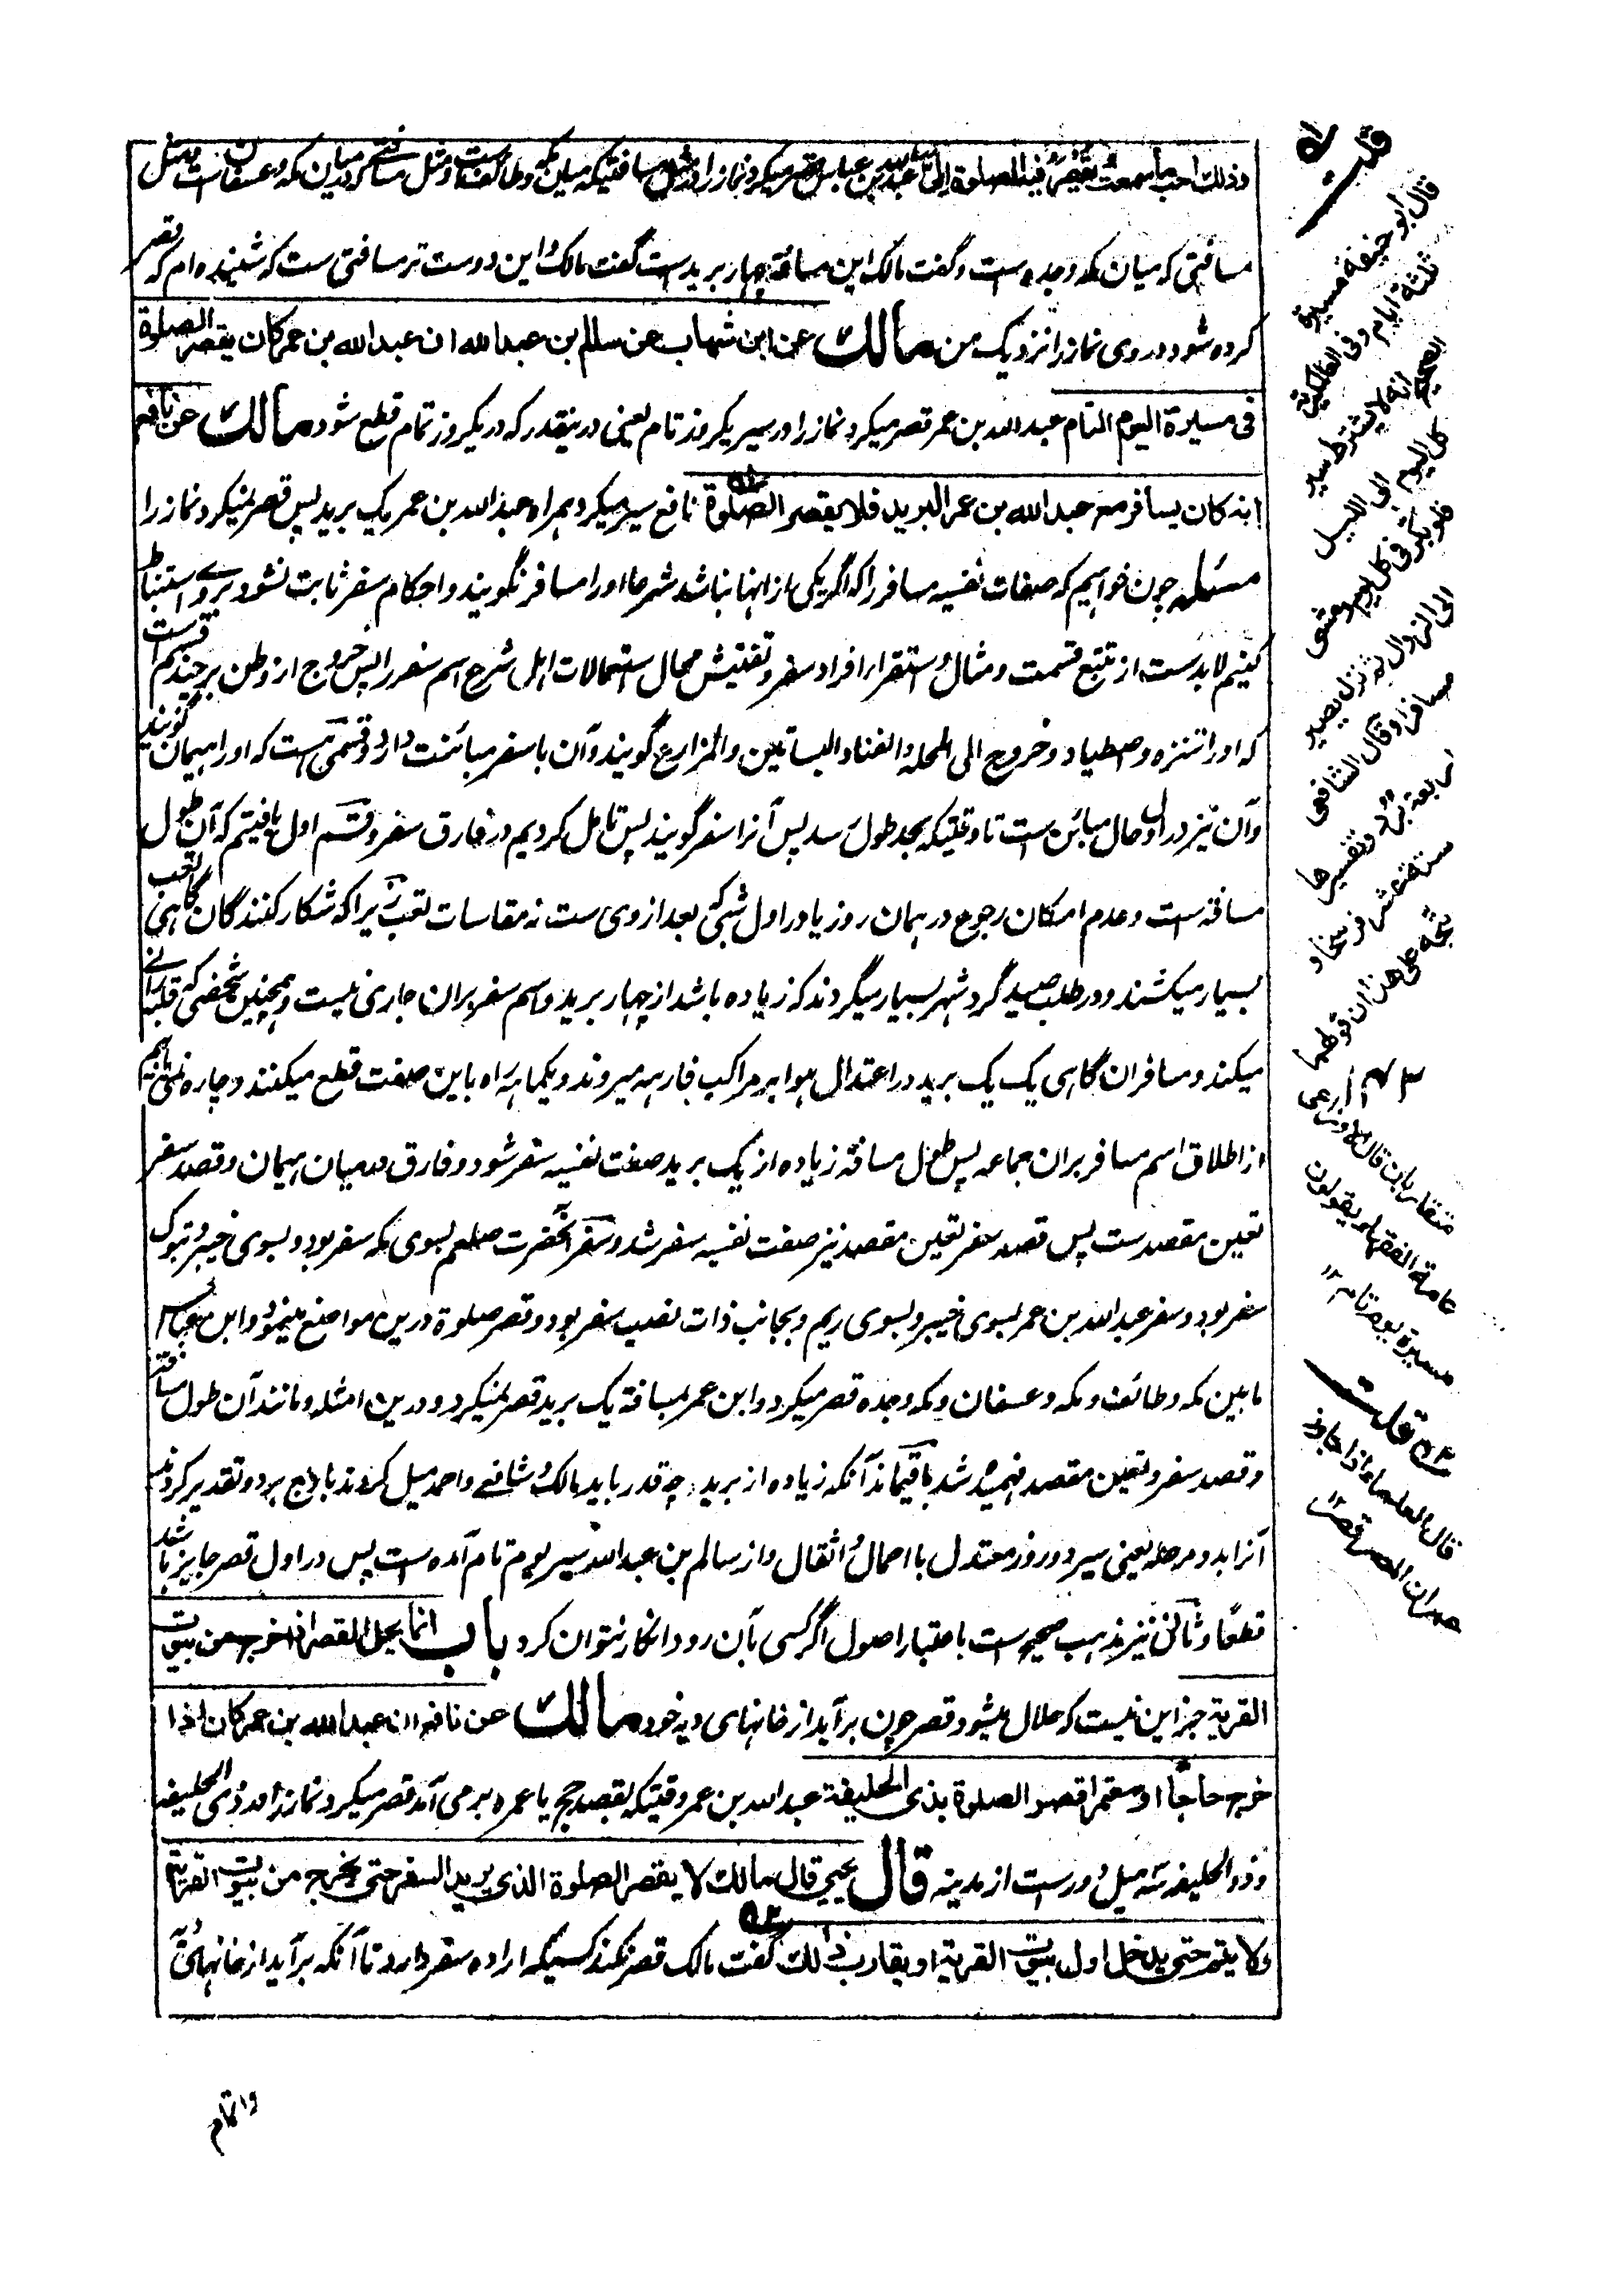 وذلك احب ما سمعت تقصر فيه الصلوة الىّ عبدالله بن عباس قصر میکرد نماز را در مثل مسافتیکه میان مکه وطائف ست و مثل مسافتیکه در میان مکه و عسفان ست و مثل
مسافتی که میان مکه و جده ست و گفت مالک این مسافة چهار برید ست گفت مالک این دوست تر مسافتی ست که شنیده ام که قصر
کرده شود در وی نماز را نزدیک من مالك عن ابن شهاب عن سالم بن عبدالله ان عبدالله بن عمر كان يقصر الصلوة
فى مسيرة اليوم التام عبدالله بن عمر قصر میکرد نماز را در سیر یکروز تام یعنی درینقدر که در یکروز تمام قطع شود مالك عن نافع
انه كان يسافر مع عبدالله بن عمر البريد فلا يقصر الصلوة نافع سیر میکرد همراه عبدالله بن عمر یک برید پس قصر نمیکرد نماز را
مسئله چون خواهیم که صفات نفسیه مسافر را که اگر یکی از انها نباشد شرعا او را مسافر نگویند و احکام سفر ثابت نشود بروے استنباط
کنیم لابدست از تتبع قسمت و مثال و استقراء افراد سفر و تفتیش محال استعمالات اهل شرع اسم سفر را پس خروج از وطن بر چند قسم است
که او را تنزه و اصطیاد و خروج الی المحله و الفناء و البساتین و المزارع گویند و آن با سفر مبائنت دارد و قسمی هست که او را هیمان گویند
و آن نیز در اول حال مبائن ست تا وقتیکه بحد طول رسد پس آنرا سفر گویند پس تامل کردیم در فارق سفر و قسم اول یافتیم که آن طول
مسافة ست و عدم امکان رجوع در همان روز یا در اول شبی که بعد از وی ست نه مقاسات تعب زیرا که شکار کنندگان گاهی تعب
بسیار میکشند و در طلب صید گرد شهر بسیار میگردند که زیاده باشد از چهار برید و اسم سفر بران جاری نیست و همچنین شخصی که قلبه رانے
میکند و مسافران گاهی یک یک برید در اعتدال هوا بر مراکب فارهه میروند و یکماهه راه باین صفت قطع میکنند و چاره نمی یابیم
از اطلاق اسم مسافر بران جماعه پس طول مسافة زیاده از یک برید صفت نفسیه سفر شود و فارق در میان هیمان و قصد سفر
تعین مقصدست پس قصد سفر تعین مقصد نیز صفت نفسیه سفر شد و سفر آنحضرت صلعم بسوی مکه سفر بود و بسوی خیبر و تبوک
سفر بود و سفر عبدالله بن عمر بسوی خیبر و بسوی ریم و بجانب ذات نصیب سفر بود و قصر صلوة درین مواضع مینمود و ابن عباس
ما بین مکه و طائف و مکه و عسفان و مکه و جده قصر میکرد و ابن عمر بمسافة یک برید قصر نمیکرد و درین امثله و مانند آن طول مسافت
و قصد سفر و تعین مقصد فهمیده شد باقیماند آنکه زیاده از برید چه قدر باید مالک و شافعے و احمد میل کردند باربع برد و تقدیر کردند
آنرا بدو مرحله یعنی سیر دو روز معتدل با احمال و اثقال و از سالم بن عبدالله سیر یوم تام آمده ست پس در اول قصر جایز باشد
قطعًا و ثانی نیز مذهب صحیح ست باعتبار اصول اگر کسی بآن رود انکار نتوان کرد باب انما يحل القصر اذا خرج من بيوت
القرية جز این نیست که حلال میشود قصر چون برآید از خانهای دیه خود مالك عن نافع ان عبدالله بن عمر كان اذا
خرج حاجًا او معتمرا قصر الصلوة بذى الحليفة عبدالله بن عمر وقتیکه بقصد حج یا عمره برمی آمد قصر میکرد نماز را در ذی الحلیفه
و ذو الحلیفه سه میل دورست از مدینه قال يحيى قال مالك لا يقصر الصلوة الذى يريد السفر حتى يخرج من بيوت القرية
ولا يتم حتى يدخل اول بيوت القرية او يقارب ذلك گفت مالک قصر نکند کسیکه اراده سفر دارد تا آنکه برآید از خانهای
واتمام
قلت
قال ابو حنيفة مسيرة
ثلثة ايام وفى العالمگیریة
الصحیح انه لا يشترط سير
كل اليوم الى الليل
فلو بكر فى كل يوم ومشى
الى الزوال ثم نزل يصير
مسافرا وقال الشافعى
اربعة برد وتفسيرها
ستة عشر فرسخا و
يتجه على هذا ان قولهما
متقاربان قال الاوزاعى
عامة الفقهاء يقولون
مسيرة يوم تام ١٢
قلت
قال العلماء اذا جاوز
عمران المصر قصر ١٢